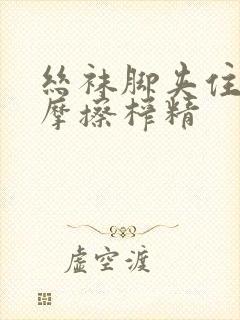 丝袜脚夹住
摩擦榨精
虚空渡